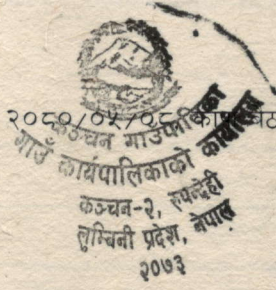 २०८०/०५/०८
कञ्चन गाउँपालिका
गाउँ कार्यपालिकाको कार्यालय
कञ्चन-२, रुपन्देही
लुम्बिनी प्रदेश, नेपाल
२०७३